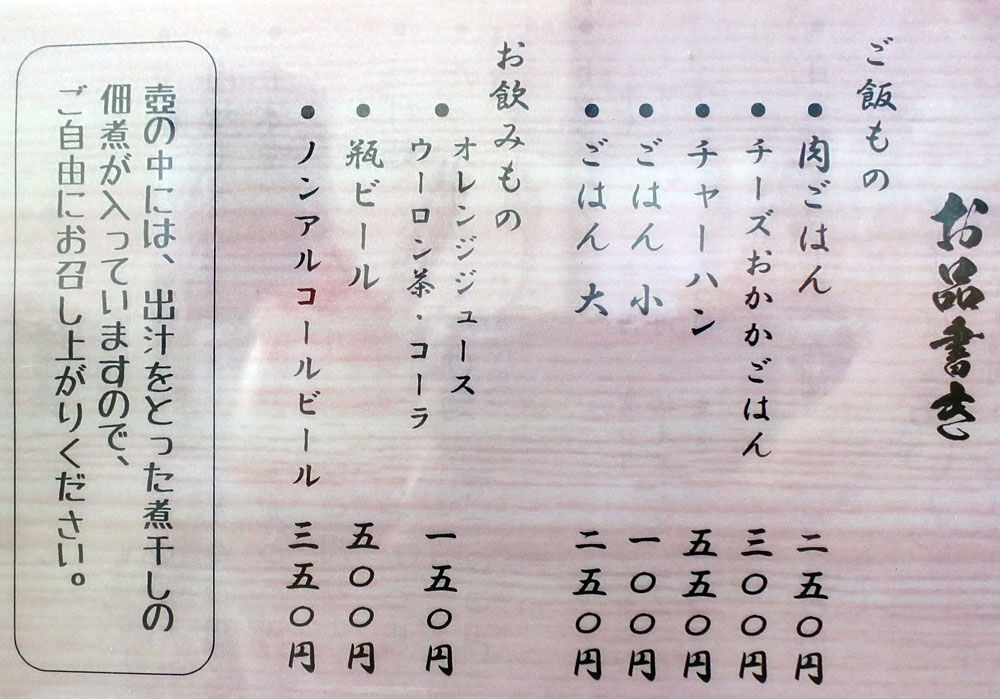 お品書き
ご飯もの
●肉ごはん 二五〇円
●チーズおかかごはん 三〇〇円
●チャーハン 五五〇円
●ごはん 小 一〇〇円
●ごはん 大 二五〇円
お飲みもの
●オレンジジュース
ウーロン茶・コーラ 一五〇円
●瓶ビール 五〇〇円
●ノンアルコールビール 三五〇円
壺の中には、出汁をとった煮干しの
佃煮が入っていますので、
ご自由にお召し上がりください。